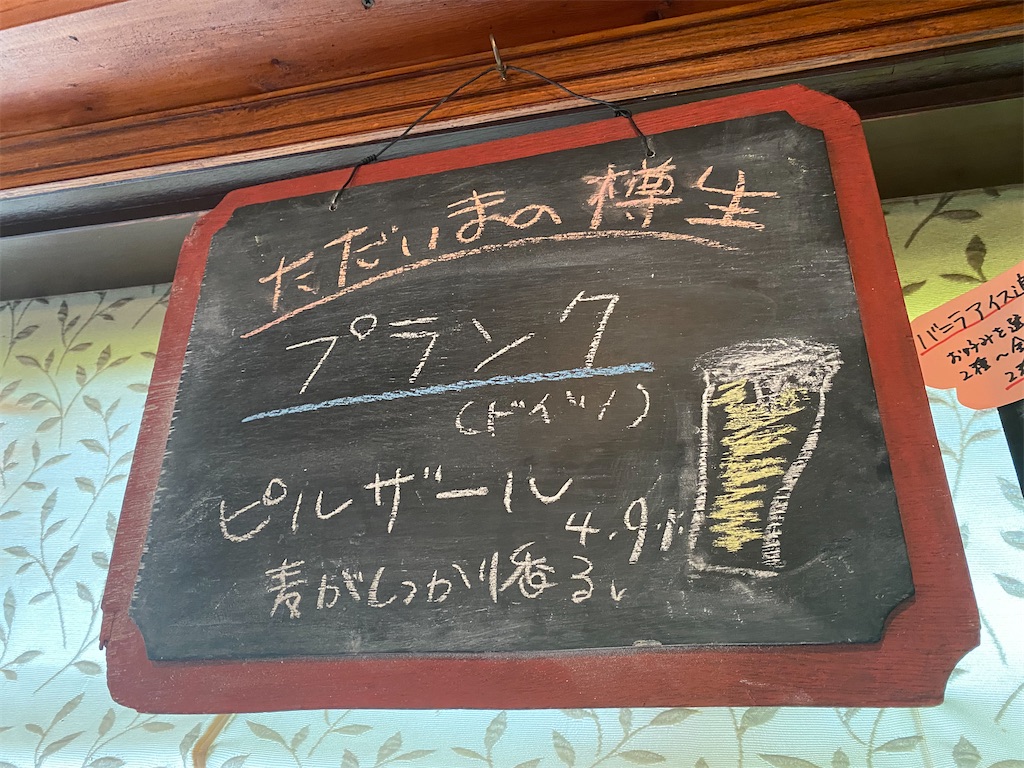 ただいまの樽生
プランク
(ドイツ)
ピルザール
4.9%
麦がしっかり香る。
バニラアイス追
お好みを選
2種～全